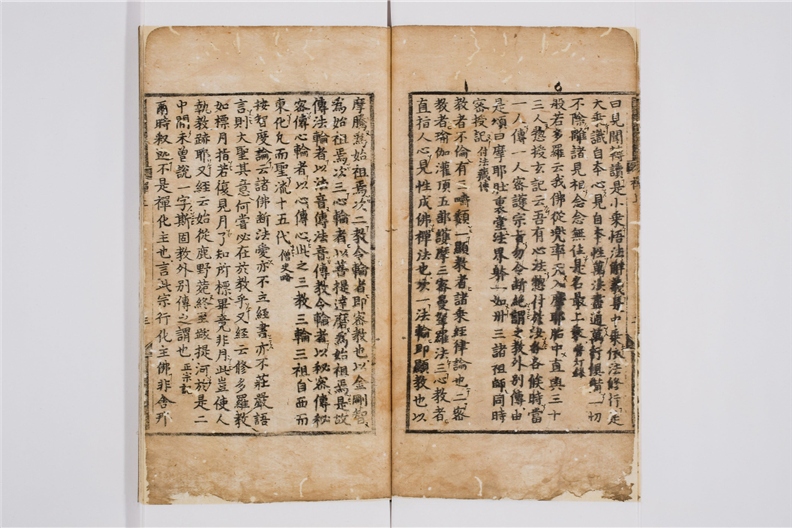 曰見聞轉誦是小乘悟法解義是中乘依法修行是
大乘識自本心見自本性萬法盡通萬行俱備一切
不除離諸見相念念無住是名最上乘
般若多羅云我佛從兜率天入摩耶胎中直與三十
三人惣授玄記云吾有心法惣付於汝各各候時當
一人傳一人密護宗旨勿令斷絶謂之教外別傳由
是頌曰摩耶肚裏堂法界體一如卅三諸祖師同時
密授記 付法藏傳
教者不倫有三疇類一顯教者諸乘經律論也二密
教者瑜伽灌頂五部護摩三密曼拏羅法三心教者
直指人心見性成佛禪法也次一法輪即顯教也以
摩騰爲始祖焉次二教令輪者即密教也以金剛智
爲始祖焉次三心輪者以菩提達磨爲始祖焉是故
傳法輪者以法音傳法音傳教令輪者以秘密傳秘
密傳心輪者以心傳心此之三教三輪三祖自西而
東化凡而聖流十五代 僧史略
按智度論云諸佛斷法愛亦不立經書亦不莊嚴語
言則大聖其意何嘗必在於教乎又經云修多羅教
如標月指若復見月了知所標畢竟非月此豈使人
執教跡耶又經云始從鹿野苑終至跋提河於是二
中間未曾說一字斯固教外別傳之謂也 正宗記
爾時叔迦不是禪化主也言此宗行化主佛非舍那